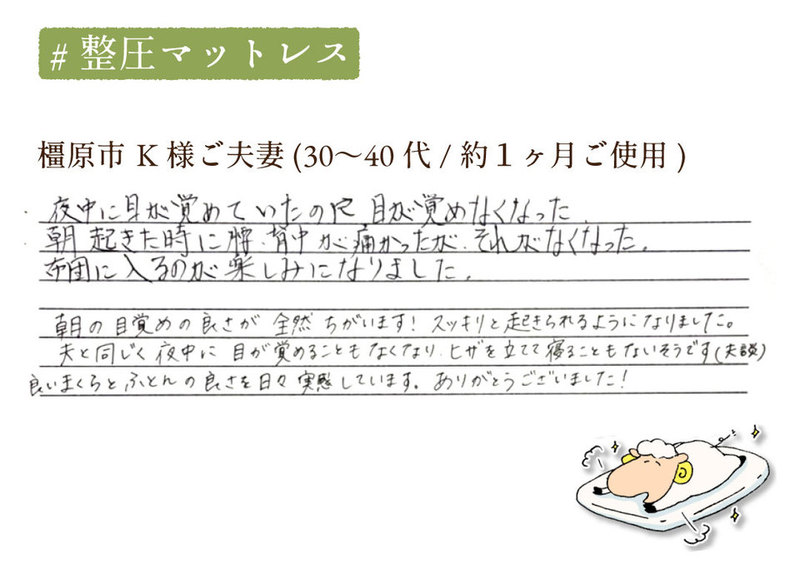 # 整圧マットレス
橿原市 K 様ご夫妻 (30〜40 代 / 約１ヶ月ご使用 )
・夜中に目が覚めていたのに目が覚めなくなった。
・朝起きた時に腰、背中が痛かったが、それがなくなった。
布団に入るのが楽しみになりました。
朝の目覚めの良さが全然ちがいます！スッキリと起きられるようになりました。
夫と同じく夜中に目が覚めることもなくなり、ヒザを立てて寝ることもないそうです(夫談)
良いまくらとふとんの良さを日々実感しています。ありがとうございました！